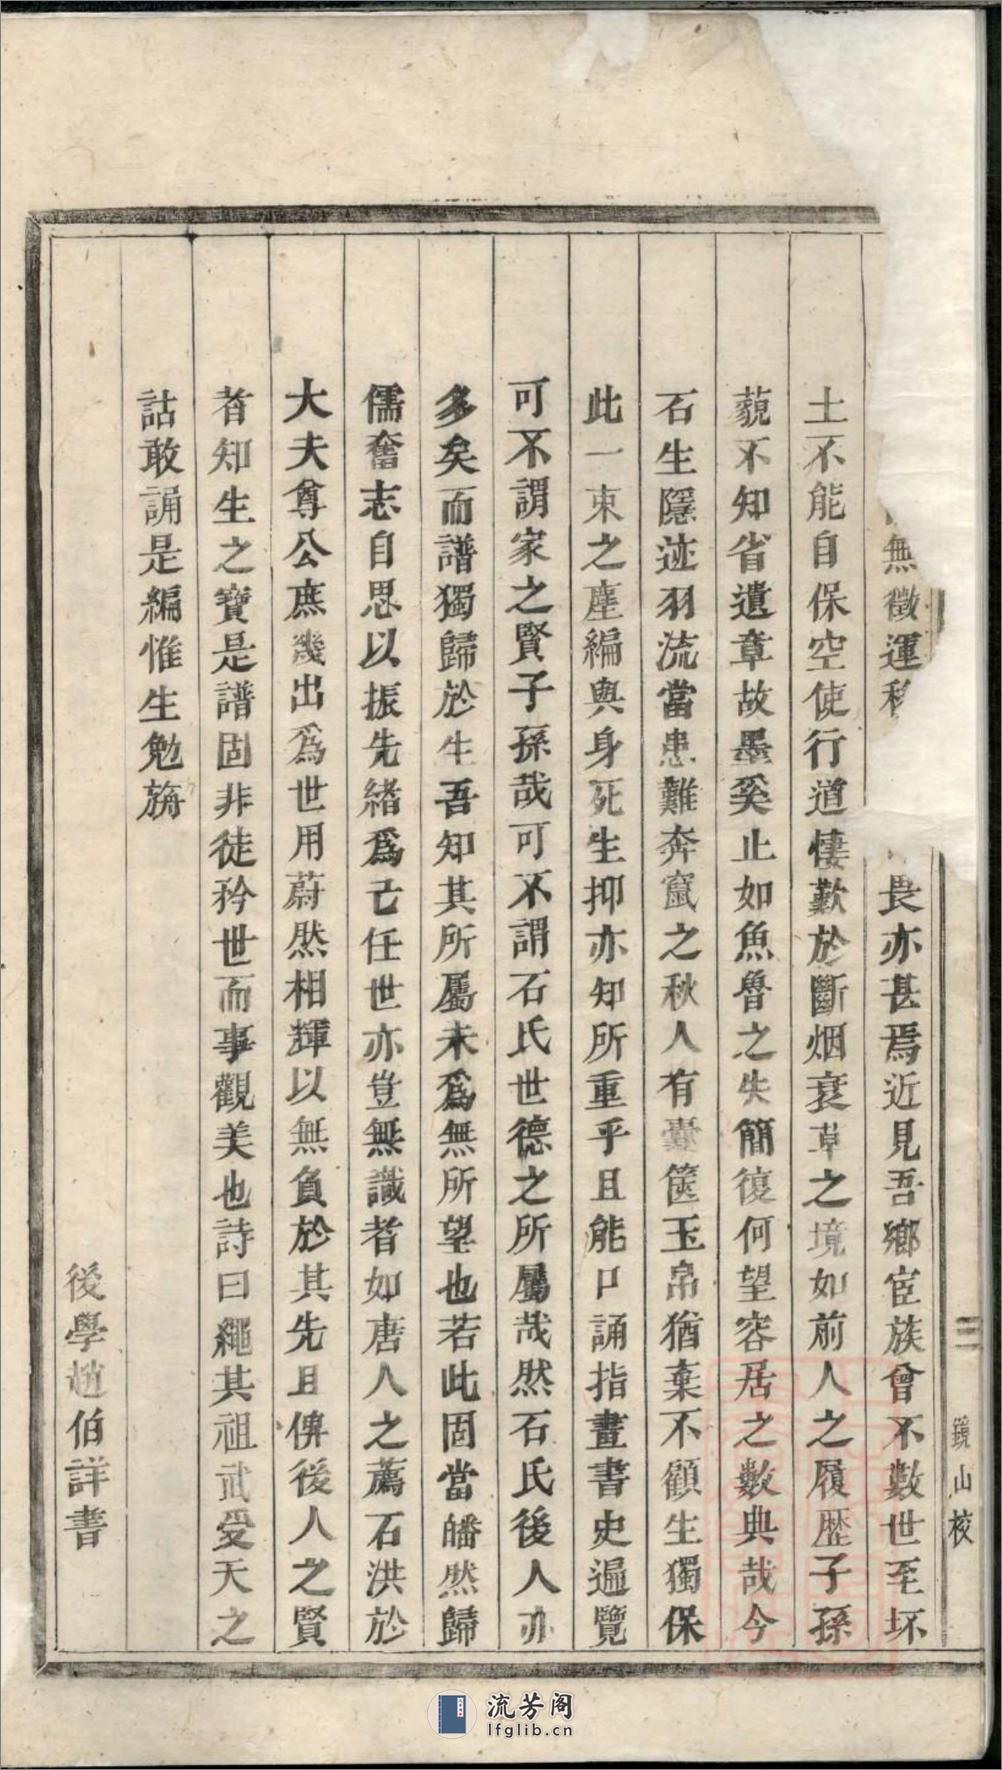 無徵運移畏亦甚焉近見吾鄉宦族曾不數世至坏
土不能自保空使行道悽歎於斷烟衰草之境如前人之履歷子孫
藐不知省遺章故墨奚止如魚魯之失簡復何望容居之數典哉今
石生隱迹羽流當患難奔竄之秋人有囊篋玉帛猶棄不顧生獨保
此一束之塵編與身死生抑亦知所重乎且能口誦指畫書史遍覽
可不謂家之賢子孫哉可不謂石氏世德之所屬哉然石氏後人亦
多矣而譜獨歸於生吾知其所屬未為無所望也若此固當皤然歸
儒奮志自思以振先緒為己任世亦豈無識者如唐人之薦石洪於
大夫尊公庶幾出為世用蔚然相輝以無負於其先且俾後人之賢
者知生之寶是譜固非徒矜世而事觀美也詩曰繩其祖武受天之
詁敢誦是編惟生勉旃
後學趙伯詳書
三
鏡山校
流芳阁
lfglib.cn